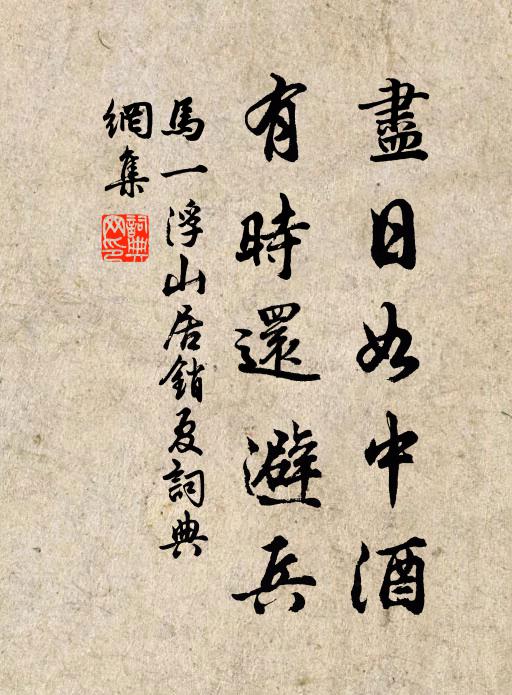 盡日如中酒
有時還避兵
馬一浮山居銷夏詞典
網集
詞典
网印